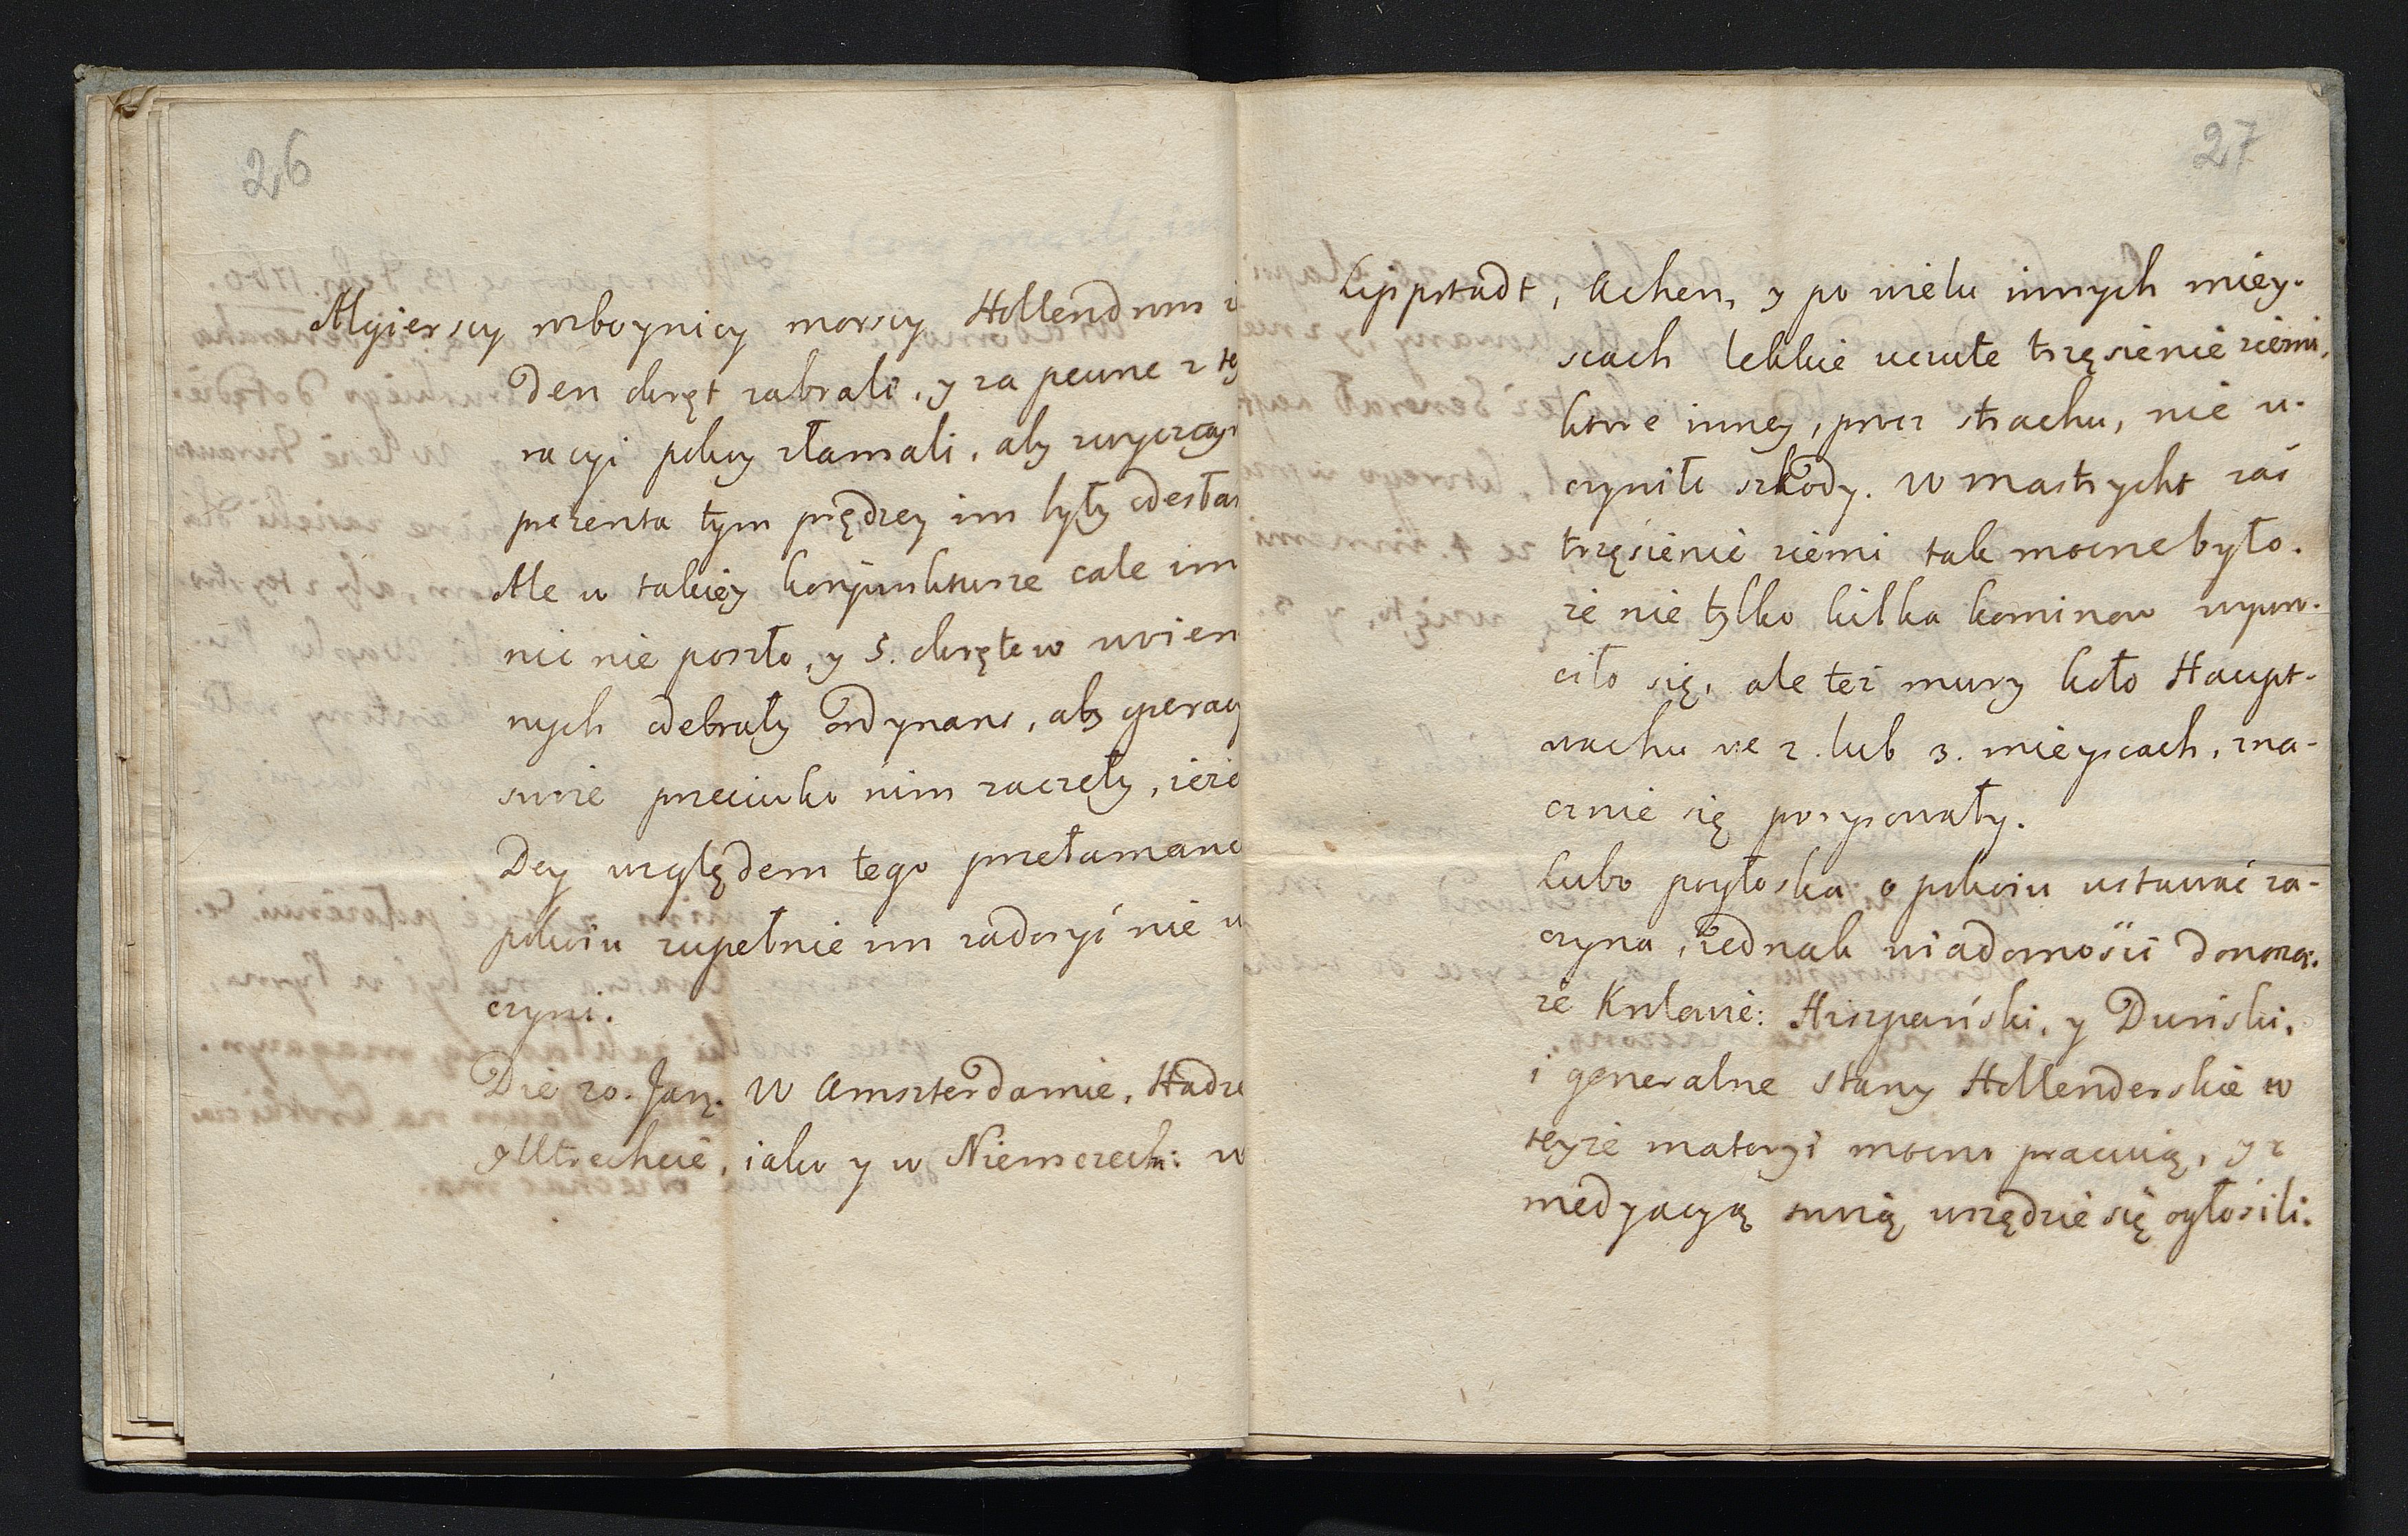 26
Algierscy rozboynicy morscy Hollendrom i
den okręt zabrali, y za pewne z te
racyi pokoy złamali, aby zwyczay
prezenta tym prędzey im były odesłan
Ale w takiey konjunkturze cale im
nic nie poszło, y 5. okrętow woien
nych odebrały Ordynans, aby operacy
swoie przeciwko nim zaczęły, ieże
Dey względem tego przełamane
pokoiu zupełnie im zadosyć nie u
czyni.
Die 20. Jan. W Amszterdamie, Hadze
y Utrechcie, iako y w Niemczech: w
27
Lippstadt, Achen, y po wielu innych miey-
scach lekkie uczute trzęsienie ziemi,
ktore inney, procz strachu, nie u-
czyniło szkody. W Mastrycht zaś
trzęsienie ziemi tak mocne było.
że nie tylko kilka kominow wywro-
ciło się, ale też mury koło Haupt-
wachu we 2. lub 3. mieyscach, zna-
cznie się porysowały.
Lubo pogłoska o pokoiu ustawać za-
czyna, iednak wiadomości donoszą.
że Krolowie: Hiszpański, y Duński,
i generalne stany Hollenderskie w
teyże materyi mocno pracuią, y z
medyacyą swoią wszędzie się ogłosili.